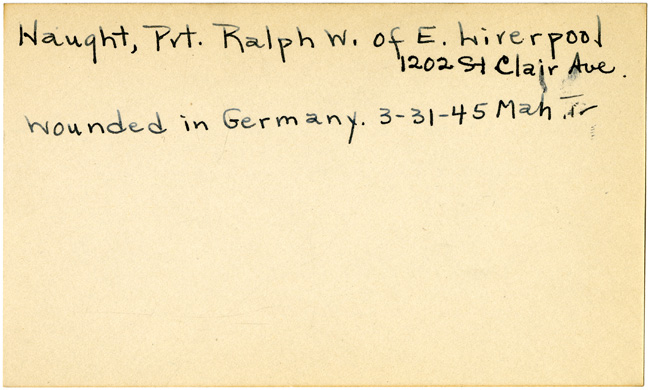 Haught, Pvt. Ralph W. of E. Liverpool
1202 St Clair Ave.
Wounded in Germany. 3-31-45 Mah. Tr